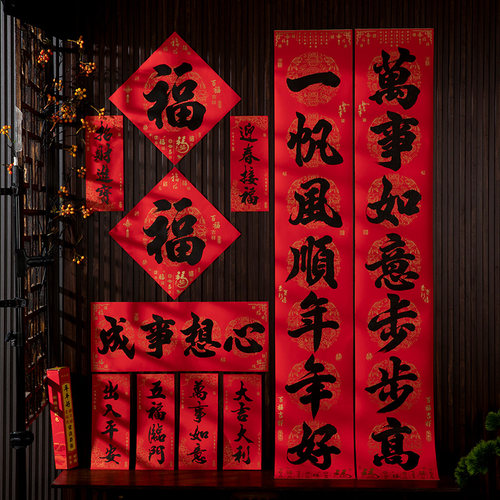 萬事如意步步高
一帆風順年年好
心想事成
福
福
迎春接福
招財進寶
大吉大利
萬事如意
五福臨門
出入平安